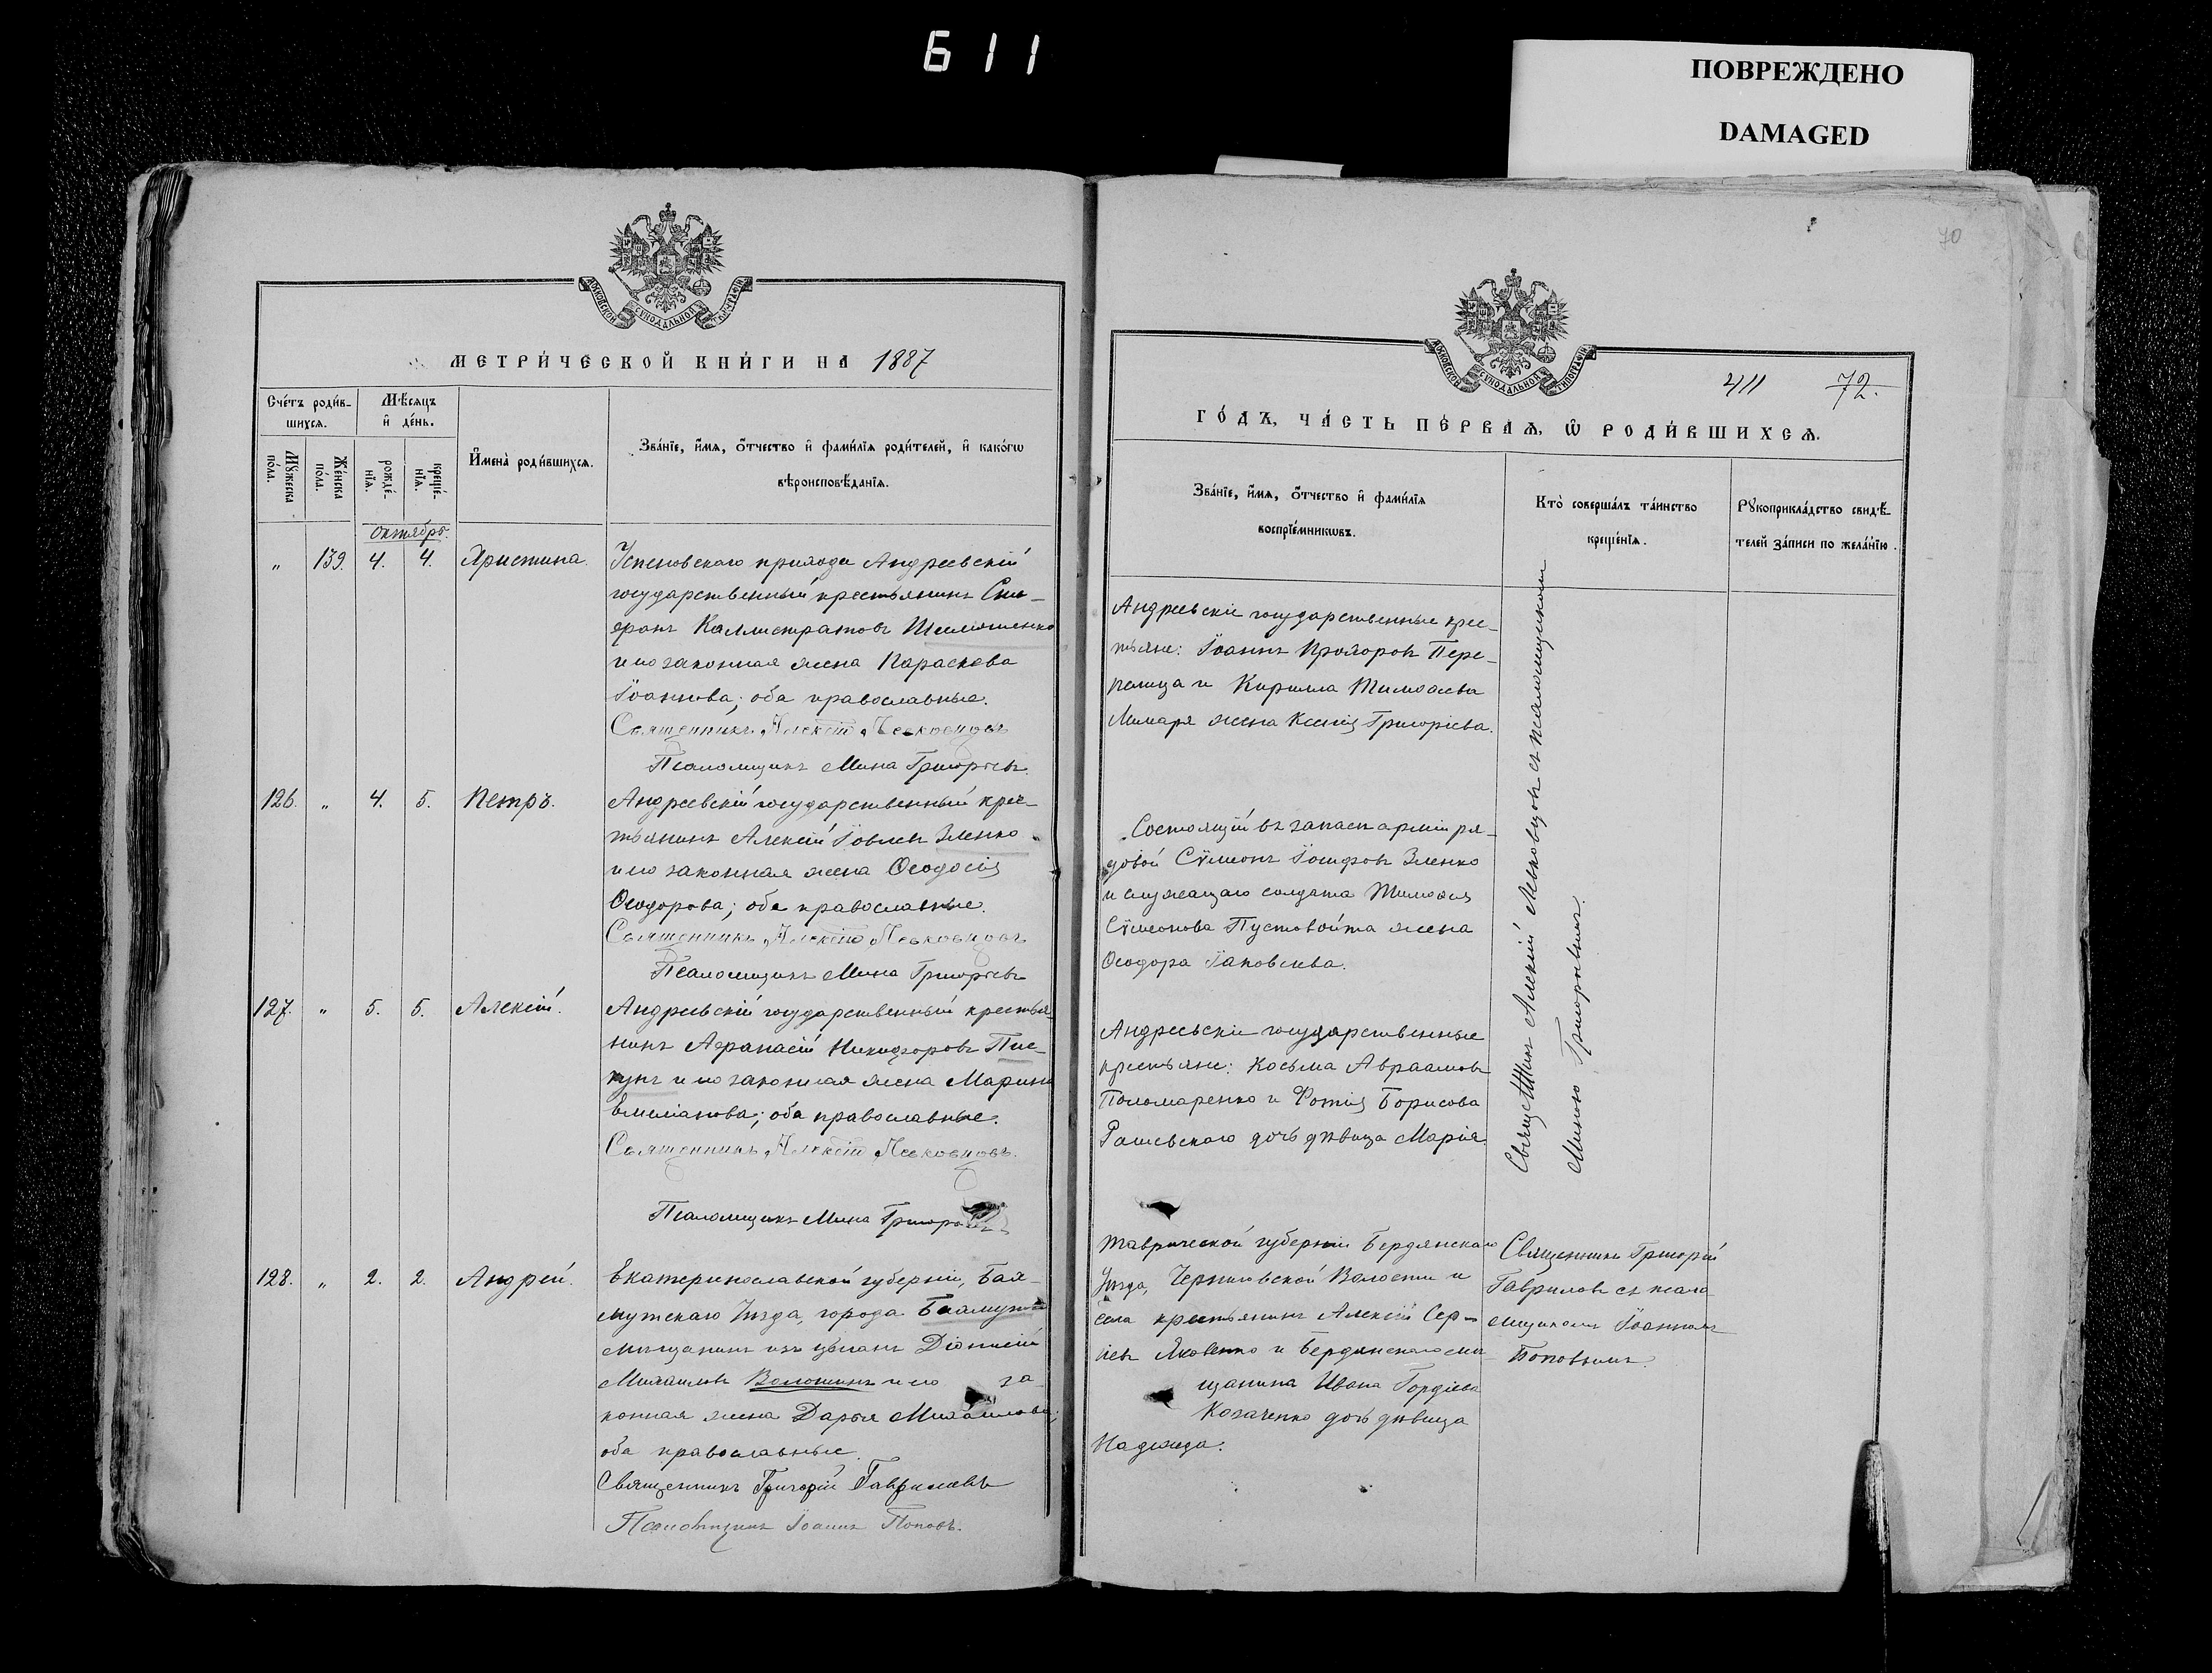 611
ПОВРЕЖДЕНО
DAMAGED
70
МОСКОВСКОЙ СУНОДАЛЬНОЙ ТИПОГРАФІИ
МЕТРИ́ЧЕСКОЙ КНИ́ГИ НА 1887
Сче́тъ роди́в-
шихсѧ.
Мѣ́сѧцъ
и҆ де́нь.
Мꙋ́жеска по́ла.
Же́нска по́ла.
рожде́-
нїѧ.
креще́-
нїѧ.
И҆мена̀ роди́вшихсѧ.
Зва́нїе, и҆́мѧ, ѻ҆́тчество и҆ фами́лїѧ роди́телей, и҆ како́гѡ
вѣроисповѣ́данїѧ.
Октябрь.
„ 139. 4. 4. Христина.
Успеновскаго прихода Андреевскій
государственный крестьянинъ Спи-
ридонъ Каллистратовъ
и его законная жена Параскева
Іоаннова; оба православные.
Священникъ Алексій Левковцовъ
Псаломщикъ Мина Григорьевъ.
126. „ 4. 5. Петръ.
Андреевскій государственный крес-
тьянинъ Алексій Іовлевъ Зленко
и его законная жена Ѳеодосія
Ѳеодорова; оба православные.
Священникъ Алексій Левковцовъ
Псаломщикъ Мина Григорьевъ
127. „ 5. 5. Алексій.
Андреевскій государственный крестья-
нинъ Аѳанасій Никифоровъ Пис-
кунъ и его законная жена Марина
Емиліанова; оба православные.
Священникъ Алексій Левковцовъ.
Псаломщикъ Мина Григорьевъ
128. „ 2. 2. Андрей.
Екатеринославской губерніи, Бах-
мутскаго Уѣзда, города Бахмута
мѣщанинъ изъ цыганъ Діонисій
Михаиловъ Волошинъ и его за-
конная жена Дарья Михаилова;
оба православные.
Священникъ Григорій Гавриловъ
Псаломщикъ Іоаннъ Поповъ.
МОСКОВСКОЙ СУНОДАЛЬНОЙ ТИПОГРАФІИ
411 72.
ГО́ДЪ, ЧА́СТЬ ПЕ́РВАѦ, Ѡ҆ РОДИ́ВШИХСѦ.
Зва́нїе, и҆́мѧ, ѻ҆́тчество и҆ фами́лїѧ
воспрїе́мникѡвъ.
Кто̀ соверша́лъ та́инство
креще́нїѧ.
Рꙋкоприкла́дство свидѣ́-
телей за́писи по жела́нїю.
Андреевскіе государственные крес-
тьяне: Іоаннъ Прохоровъ Пере-
релица и Кирилла Тимоѳеева
Лимаря жена Ксенія Григоріева.
Состоящій въ запасѣ арміи ря-
довой Сѵмеонъ Іосифовъ Зленко
и служащаго солдата Тимоѳея
Сѵмеонова Пустовойта жена
Ѳеодора Іаковлева.
Андреевскіе государственные
крестьяне: Косьма Авраамовъ
Пономаренко и Фотія Борисова
Рашевскаго дочь дѣвица Марія
Священникъ Алексій Левковцовъ съ псаломщикомъ
Миною Григорьевымъ.
Таврической губерніи Бердянскаго
Уѣзда, Черниговской Волости и
села крестьянинъ Алексій Сер-
іевъ Яковенко и Бердянскаго мѣ-
щанина Ивана Гордіева
Козаченко дочь дѣвица
Надежда.
Священникъ Григорій
Гавриловъ съ псало
мщикомъ Іоанномъ
Поповымъ.